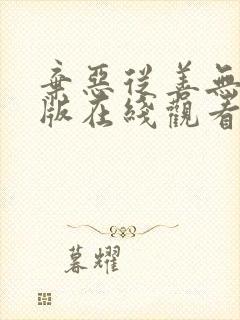 棄惡從善無
版在綫觀看
暮耀